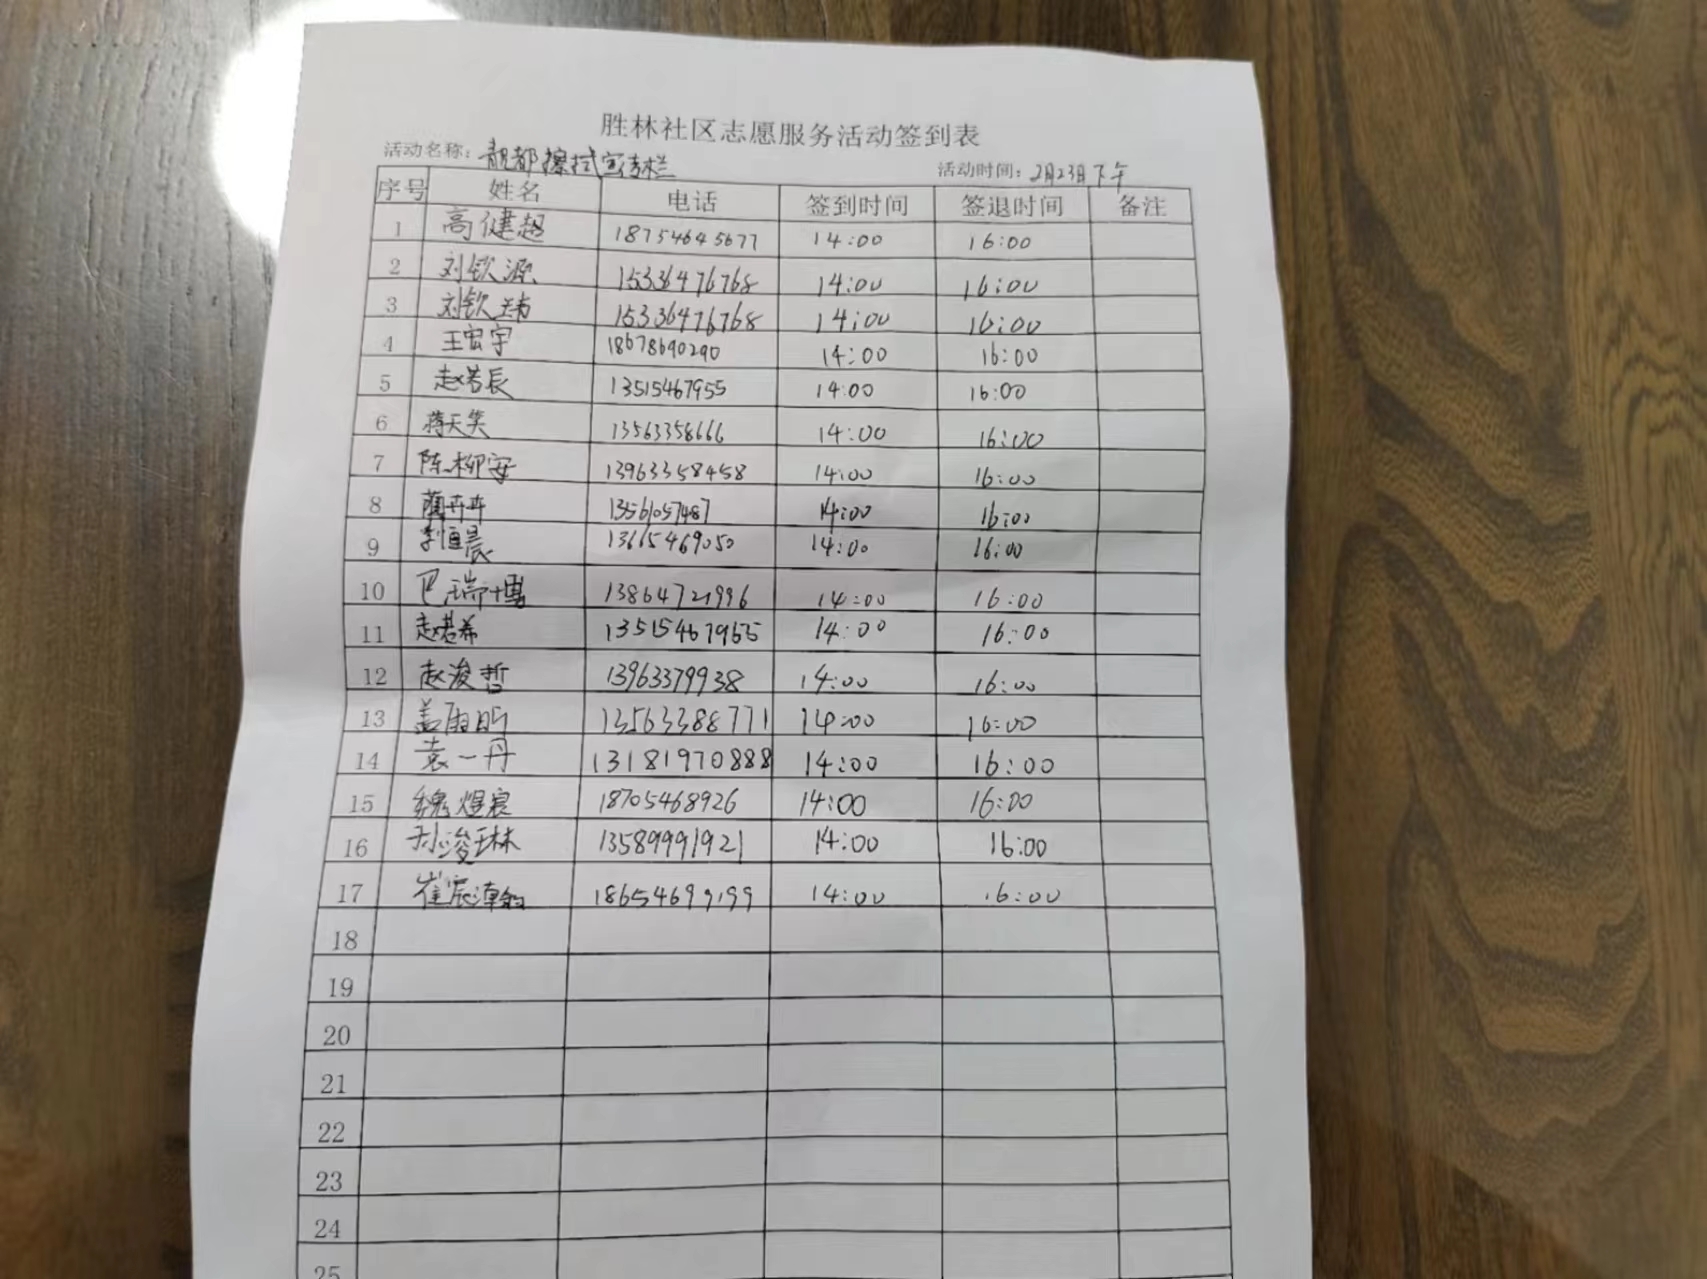 胜林社区志愿服务活动签到表
活动名称：靓都擦拭宣传栏 活动时间：2月23日下午
序号 姓名 电话 签到时间 签退时间 备注
1 高健超 18754645677 14:00 16:00
2 刘钦源 15336476768 14:00 16:00
3 刘钦玮 15336476768 14:00 16:00
4 王宏宇 18678690290 14:00 16:00
5 赵若辰 13515467955 14:00 16:00
6 蒋天笑 13563358666 14:00 16:00
7 陈柳安 13963358458 14:00 16:00
8 蔺卉卉 13561057487 14:00 16:00
9 李恒晨 13615469050 14:00 16:00
10 巴瑞博 13864721996 14:00 16:00
11 赵若希 13515467955 14:00 16:00
12 赵浚哲 13963379938 14:00 16:00
13 盖雨昕 13563388771 14:00 16:00
14 袁一丹 13181970888 14:00 16:00
15 魏煜宸 18705468926 14:00 16:00
16 孙浚琳 13589991921 14:00 16:00
17 崔宸 18654699199 14:00 16:00
18
19
20
21
22
23
24
25